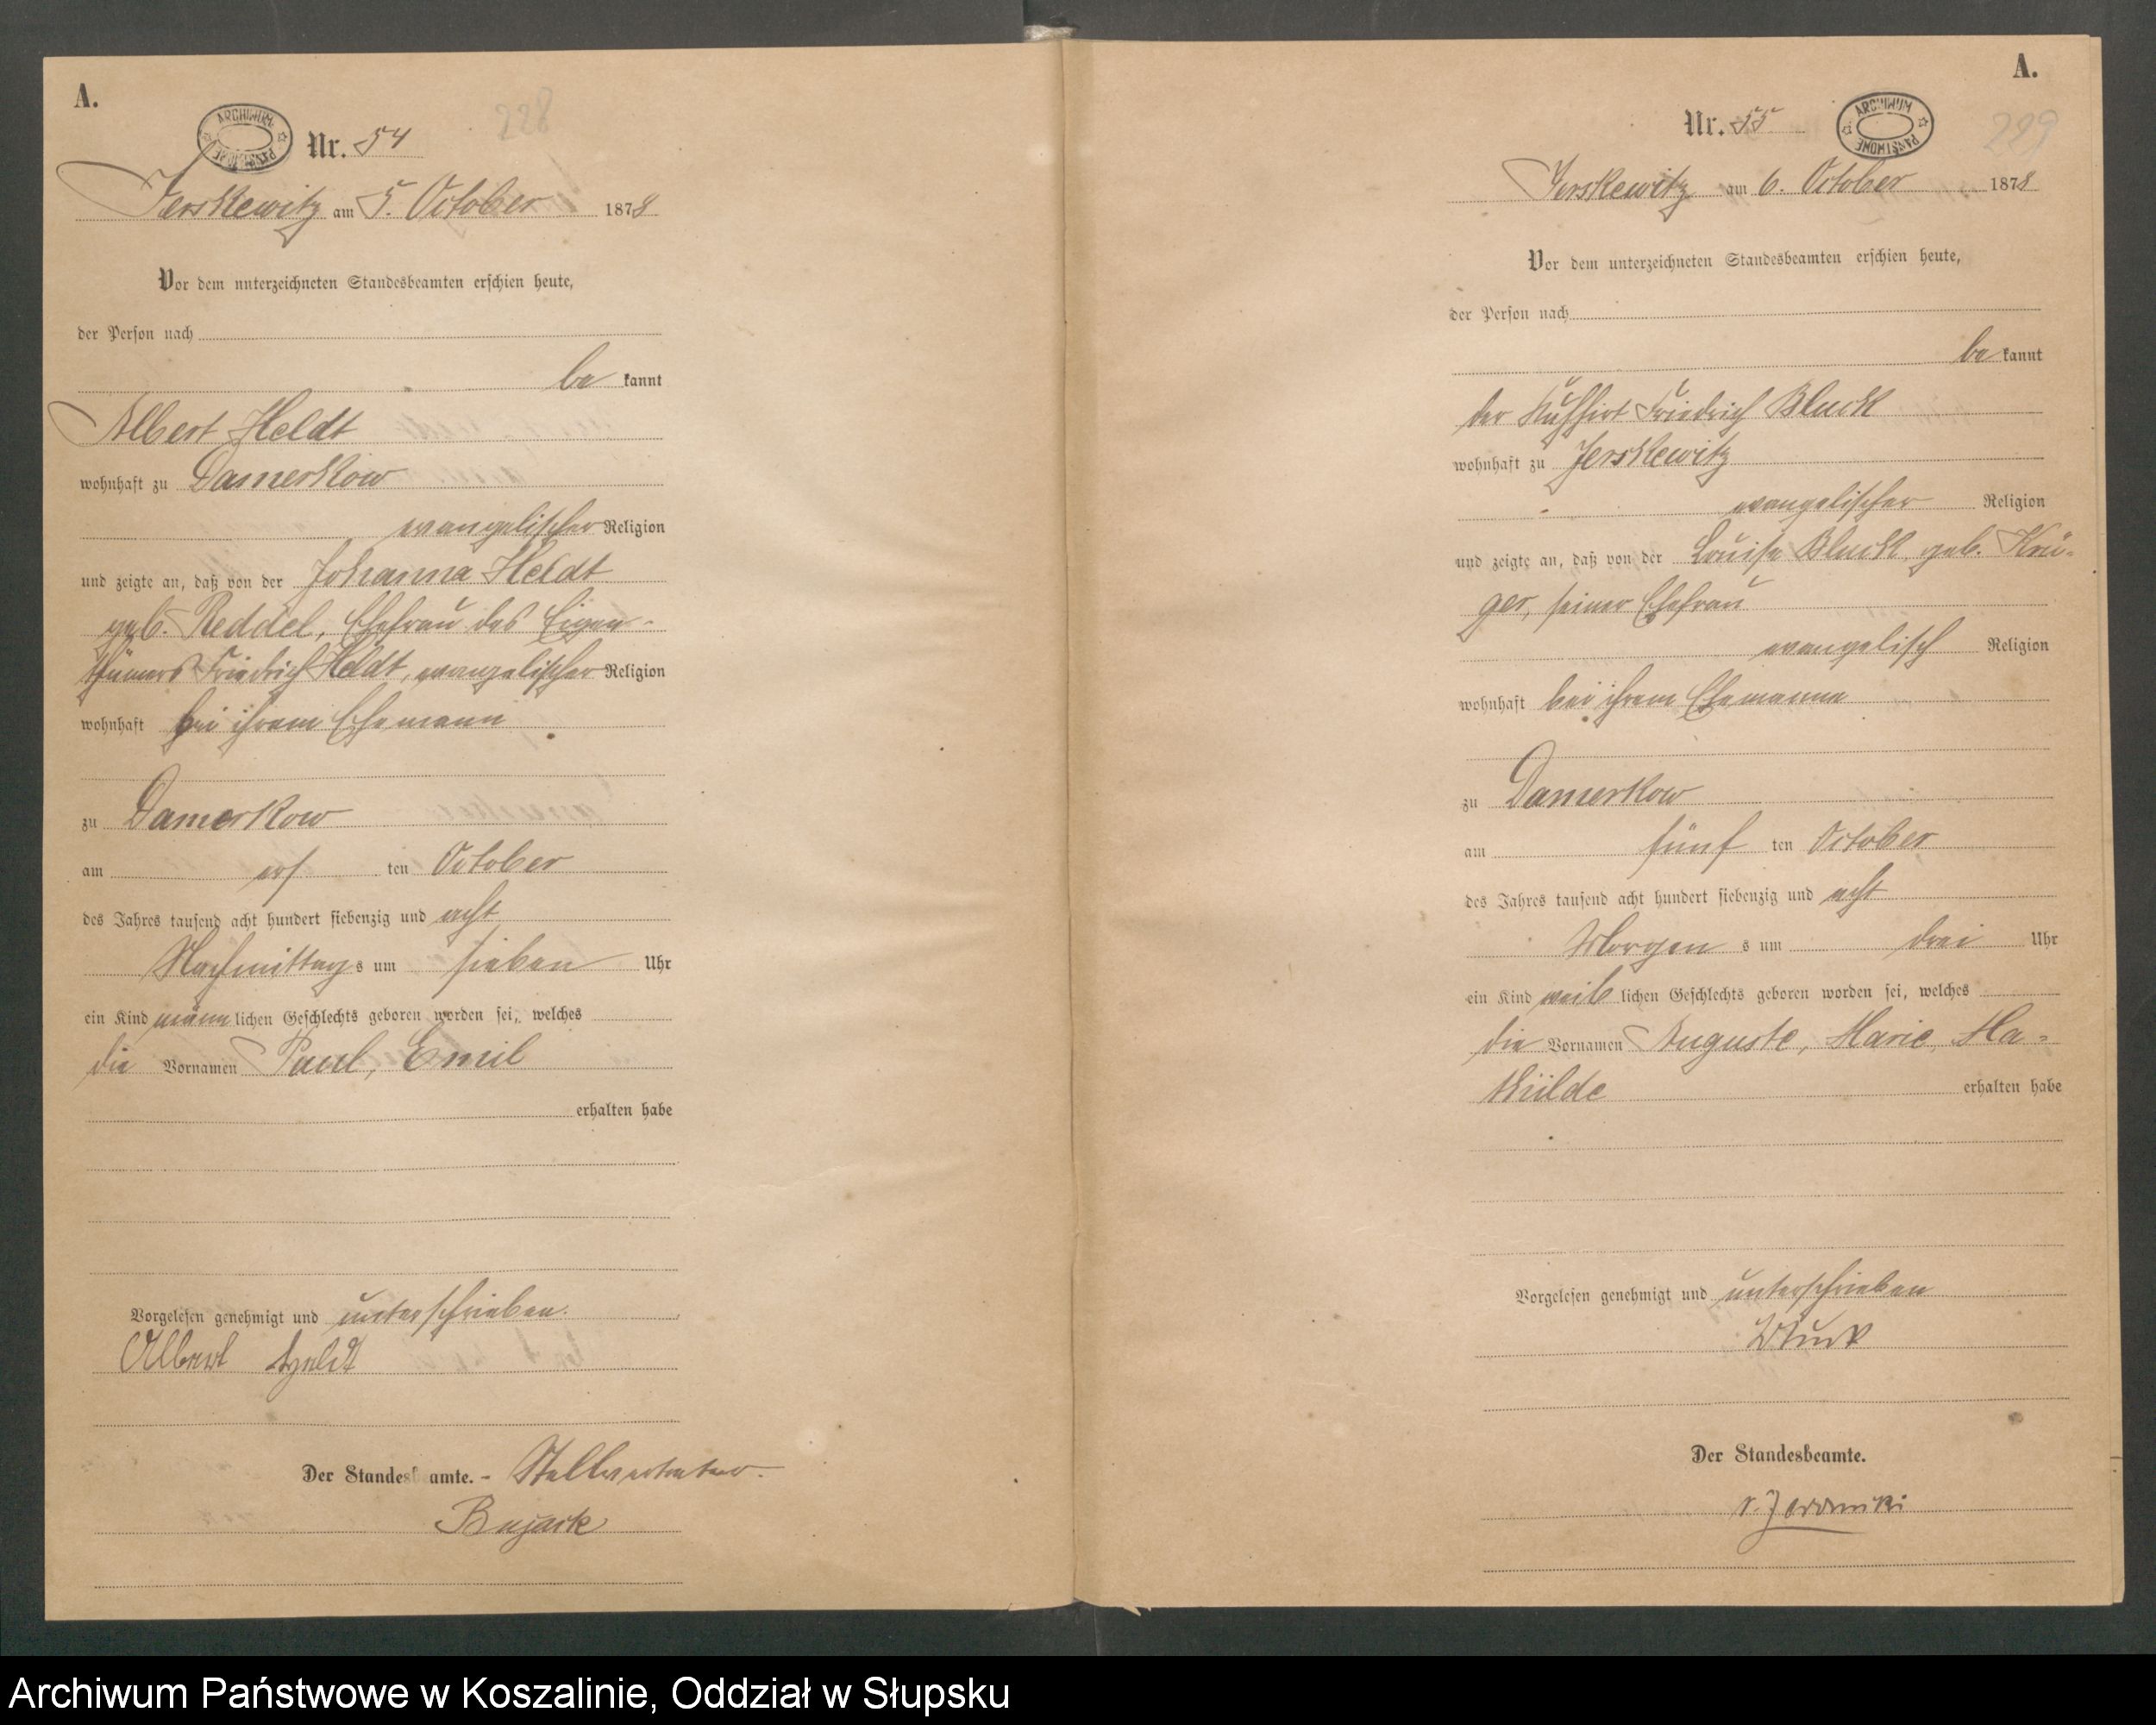 A.
ARCHIWUM PAŃSTWOWE
Nr. 54
228
Jerskewitz am 5. October 1878
Vor dem unterzeichneten Standesbeamten erschien heute,
der Person nach
be kannt
Albert Heldt
wohnhaft zu Damerkow
evangelischer Religion
und zeigte an, daß von der Johanna Heldt
geb. Reddel, Ehefrau des Eigen-
thümers Friedrich Heldt, evangelischer Religion
wohnhaft bei ihrem Ehemann
zu Damerkow
am ers ten October
des Jahres tausend acht hundert siebenzig und acht
Nachmittag s um sieben Uhr
ein Kind männ lichen Geschlechts geboren worden sei, welches
die Vornamen Paul, Emil
erhalten habe
Vorgelesen genehmigt und unterschrieben.
Albert Heldt
Der Standesbeamte. - Stellvertreter.
Bujack
A.
Nr. 55
ARCHIWUM PAŃSTWOWE
229
Jerskewitz am 6. October 1878
Vor dem unterzeichneten Standesbeamten erschien heute,
der Person nach
be kannt
der Kuhhirt Friedrich Bluck
wohnhaft zu Jerskewitz
evangelischer Religion
und zeigte an, daß von der Louise Bluck, geb. Krü-
ger, seiner Ehefrau
evangelisch Religion
wohnhaft bei ihrem Ehemanne
zu Damerkow
am fünf ten October
des Jahres tausend acht hundert siebenzig und acht
Morgen s um drei Uhr
ein Kind weib lichen Geschlechts geboren worden sei, welches
die Vornamen Auguste, Marie, Ma-
thilde erhalten habe
Vorgelesen genehmigt und unterschrieben
Bluck
Der Standesbeamte.
Archiwum Państwowe w Koszalinie, Oddział w Słupsku